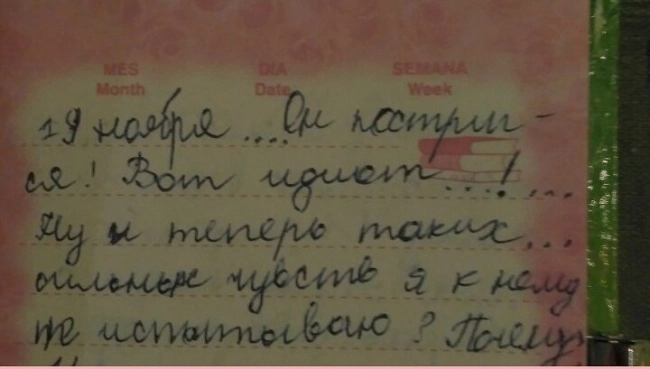 MES DIA SEMANA
Month Date Week
19 ноября ....Он постриг-
ся! Вот идиот...!...
Ну и теперь таких...
сильных чувств я к нему
не испытываю? Почему